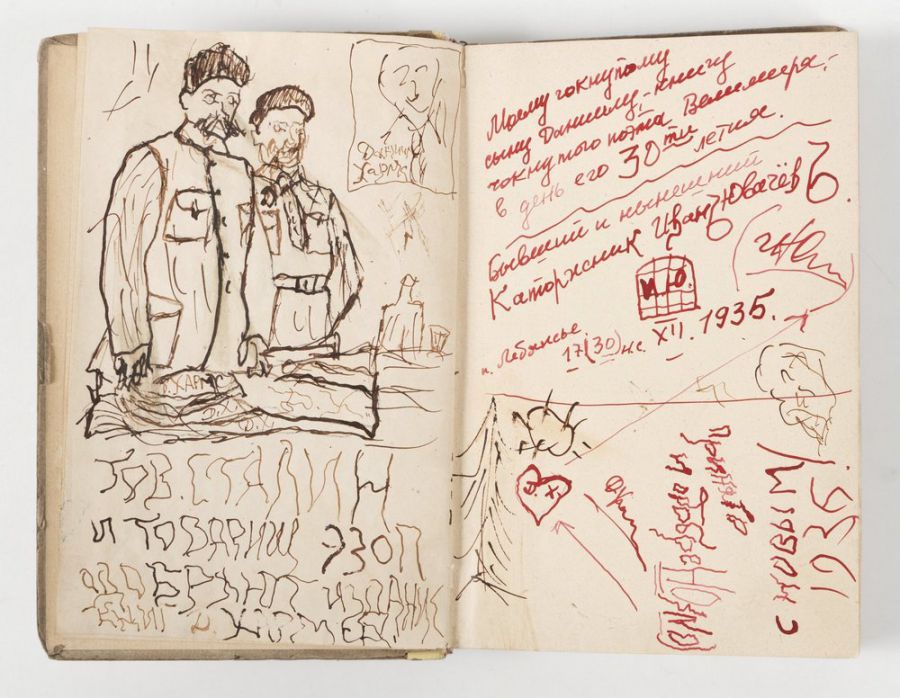 Даниил
Хармс
Д. ХАРМС
Д. Х.
ТОВ. СТАЛИН
И ТОВАРИЩ ЭЗОП
ОДОБРЯЮТ ИЗДАНИЕ
КНИГ Д. ХАРМСА
Моему чокнутому
сыну Данилу, - книгу
чокнутого поэта Велимира,
в день его 30ти летия.
Бывший и нынешний
Каторжник Иван Ювачёв
И.Ю.
п. Лебяжье.
17(30) н.с. XII. 1935.
Д. Х.
С НОВЫМ!
1935.